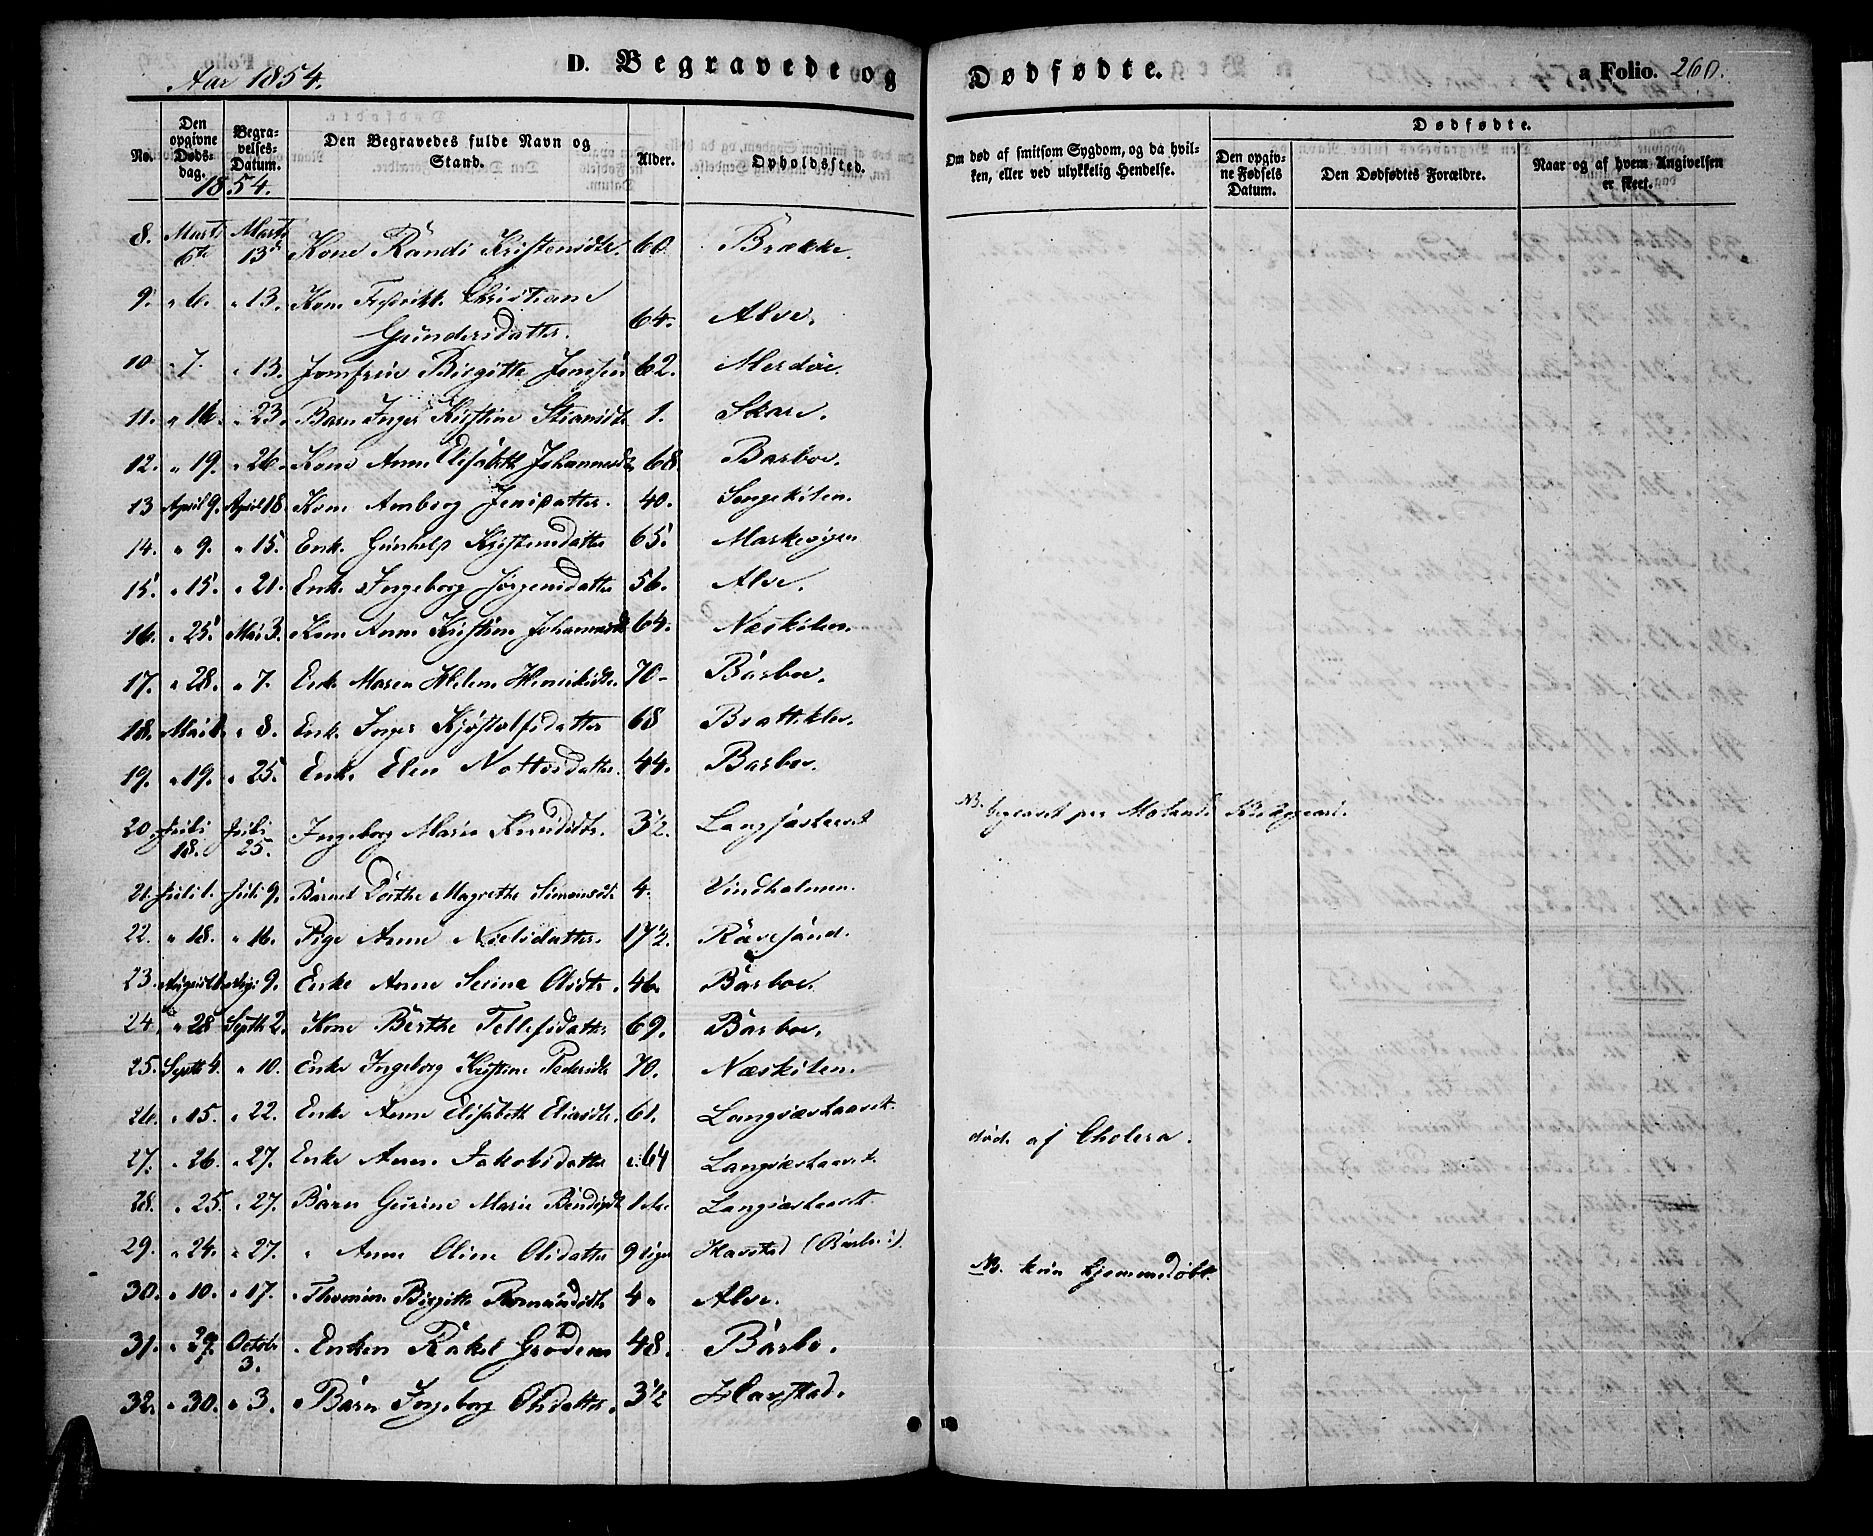 Aar 1854. D. Begravede og Dødfødte. a Folio. 260.
No. Den opgivne Døds-dag. Begra-velses-Datum. Den Begravedes fulde Navn og Stand. Alder. Opholdssted. Om død af smitsom Sygdom, og da hvil-ken, eller ved ulykkelig Hendelse. Dødfødte. Den opgiv-ne Fødsels Datum. Den Dødfødtes Forældre. Naar og af hvem Angivelsen er skeet.
1854.
8. Marts 6te Marts 13de Kone Randi Kristensdtr. 60. Brække.
9. " 6. " 13. Kone Fredrikke Christiane Gundersdatter. 64. Alve.
10 " 7. " 13. Jomfrue Birgitte Jensen 62. Merdöe.
11. " 16. " 23. Barn Inger Kirstine Stiansdtr 1. Skare.
12. " 19. " 26. Kone Anne Elisabeth Johannesdtr 68. Barboe.
13 April 9. April 18. Kone Amborg Jensdatter. 40. Songekilen.
14. " 9. " 15. Enke Gunhild Kristensdatter 65. Markevigen
15. " 15. " 21. Enke Ingeborg Jørgensdatter 56. Alve.
16. " 25. Mai 3. Kone Anne Kirstine Johannesdtr 64. Næskilen.
17. " 28. " 7. Enke Maren Helene Henriksdtr. 70. Barboe.
18. Mai 1. " 8. Enke Inger Kjøstolfsdatter 68 Bratteklev.
19. " 19. " 25. Enke Elen Nottosdatter. 44. Barboe.
20. Juli 18. Juli 25. Ingeborg Marie Knudsdtr. 3½. Langsæ NB. begravet paa Molands Kirkegaard.
21. Juli 1. Juli 9. Barnet Dorthe Magrethe Simonsdtr 4. Vindholmen.
22. " 18. " 16. Pige Anne Nielsdatter. 17½. Ravesand.
23. August 1. Aug. 9. Enke Anne Serine Olsdtr. 46. Barboe.
24. " 28 Septb 2. Kone Berthe Tellefsdatter 69. Barboe.
25. Septb 4. " 10. Enke Ingeborg Kirstine Pedersdtr 70. Næskilen.
26. " 15. " 22. Enke Anne Elisabeth Eliasdtr. 61. Langsæehaavet.
27. " 26. " 27. Enke Anne Jakobsdatter 64 Langsæehaavet. død af Cholera.
28. " 25. " 27. Barn Gurine Marie Bendixdtr 1 Langsæehaavet.
29. " 24. " 27. " Anne Oline Olsdatter 9 Uger Havstad (Barbo:).
30. " 10. " 17. " Thomine Birgitte 4 " Alve. NB. kun hjemmedøbt.
31. " 29. Octob. 3. " Enken Rakel 48. Barbo.
32. " 30. " 3. " Barn Ingeborg Olsdatter. 3½ Havstad.